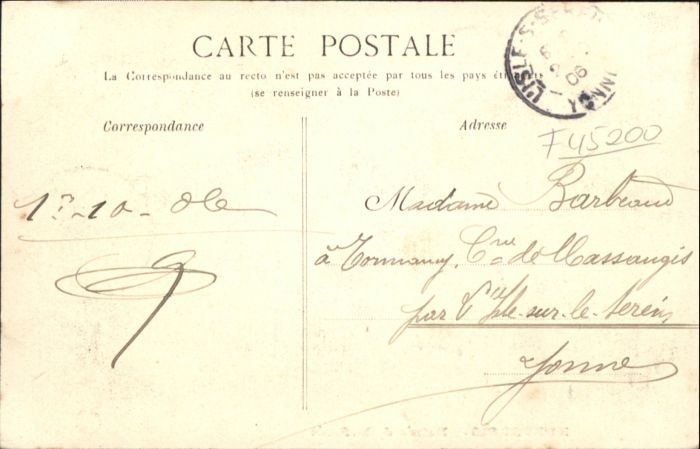 CARTE POSTALE
La Correspondance au recto n'est pas acceptée par tous les pays étrangers
(se renseigner à la Poste)
Correspondance
Adresse
L'ISLE-S-SEREIN
06
YONNE
F45200
13-10-06
Madame Barbeaud
à Tormancy, Cne de Massangis
par L'Isle-sur-le-Serein
Yonne